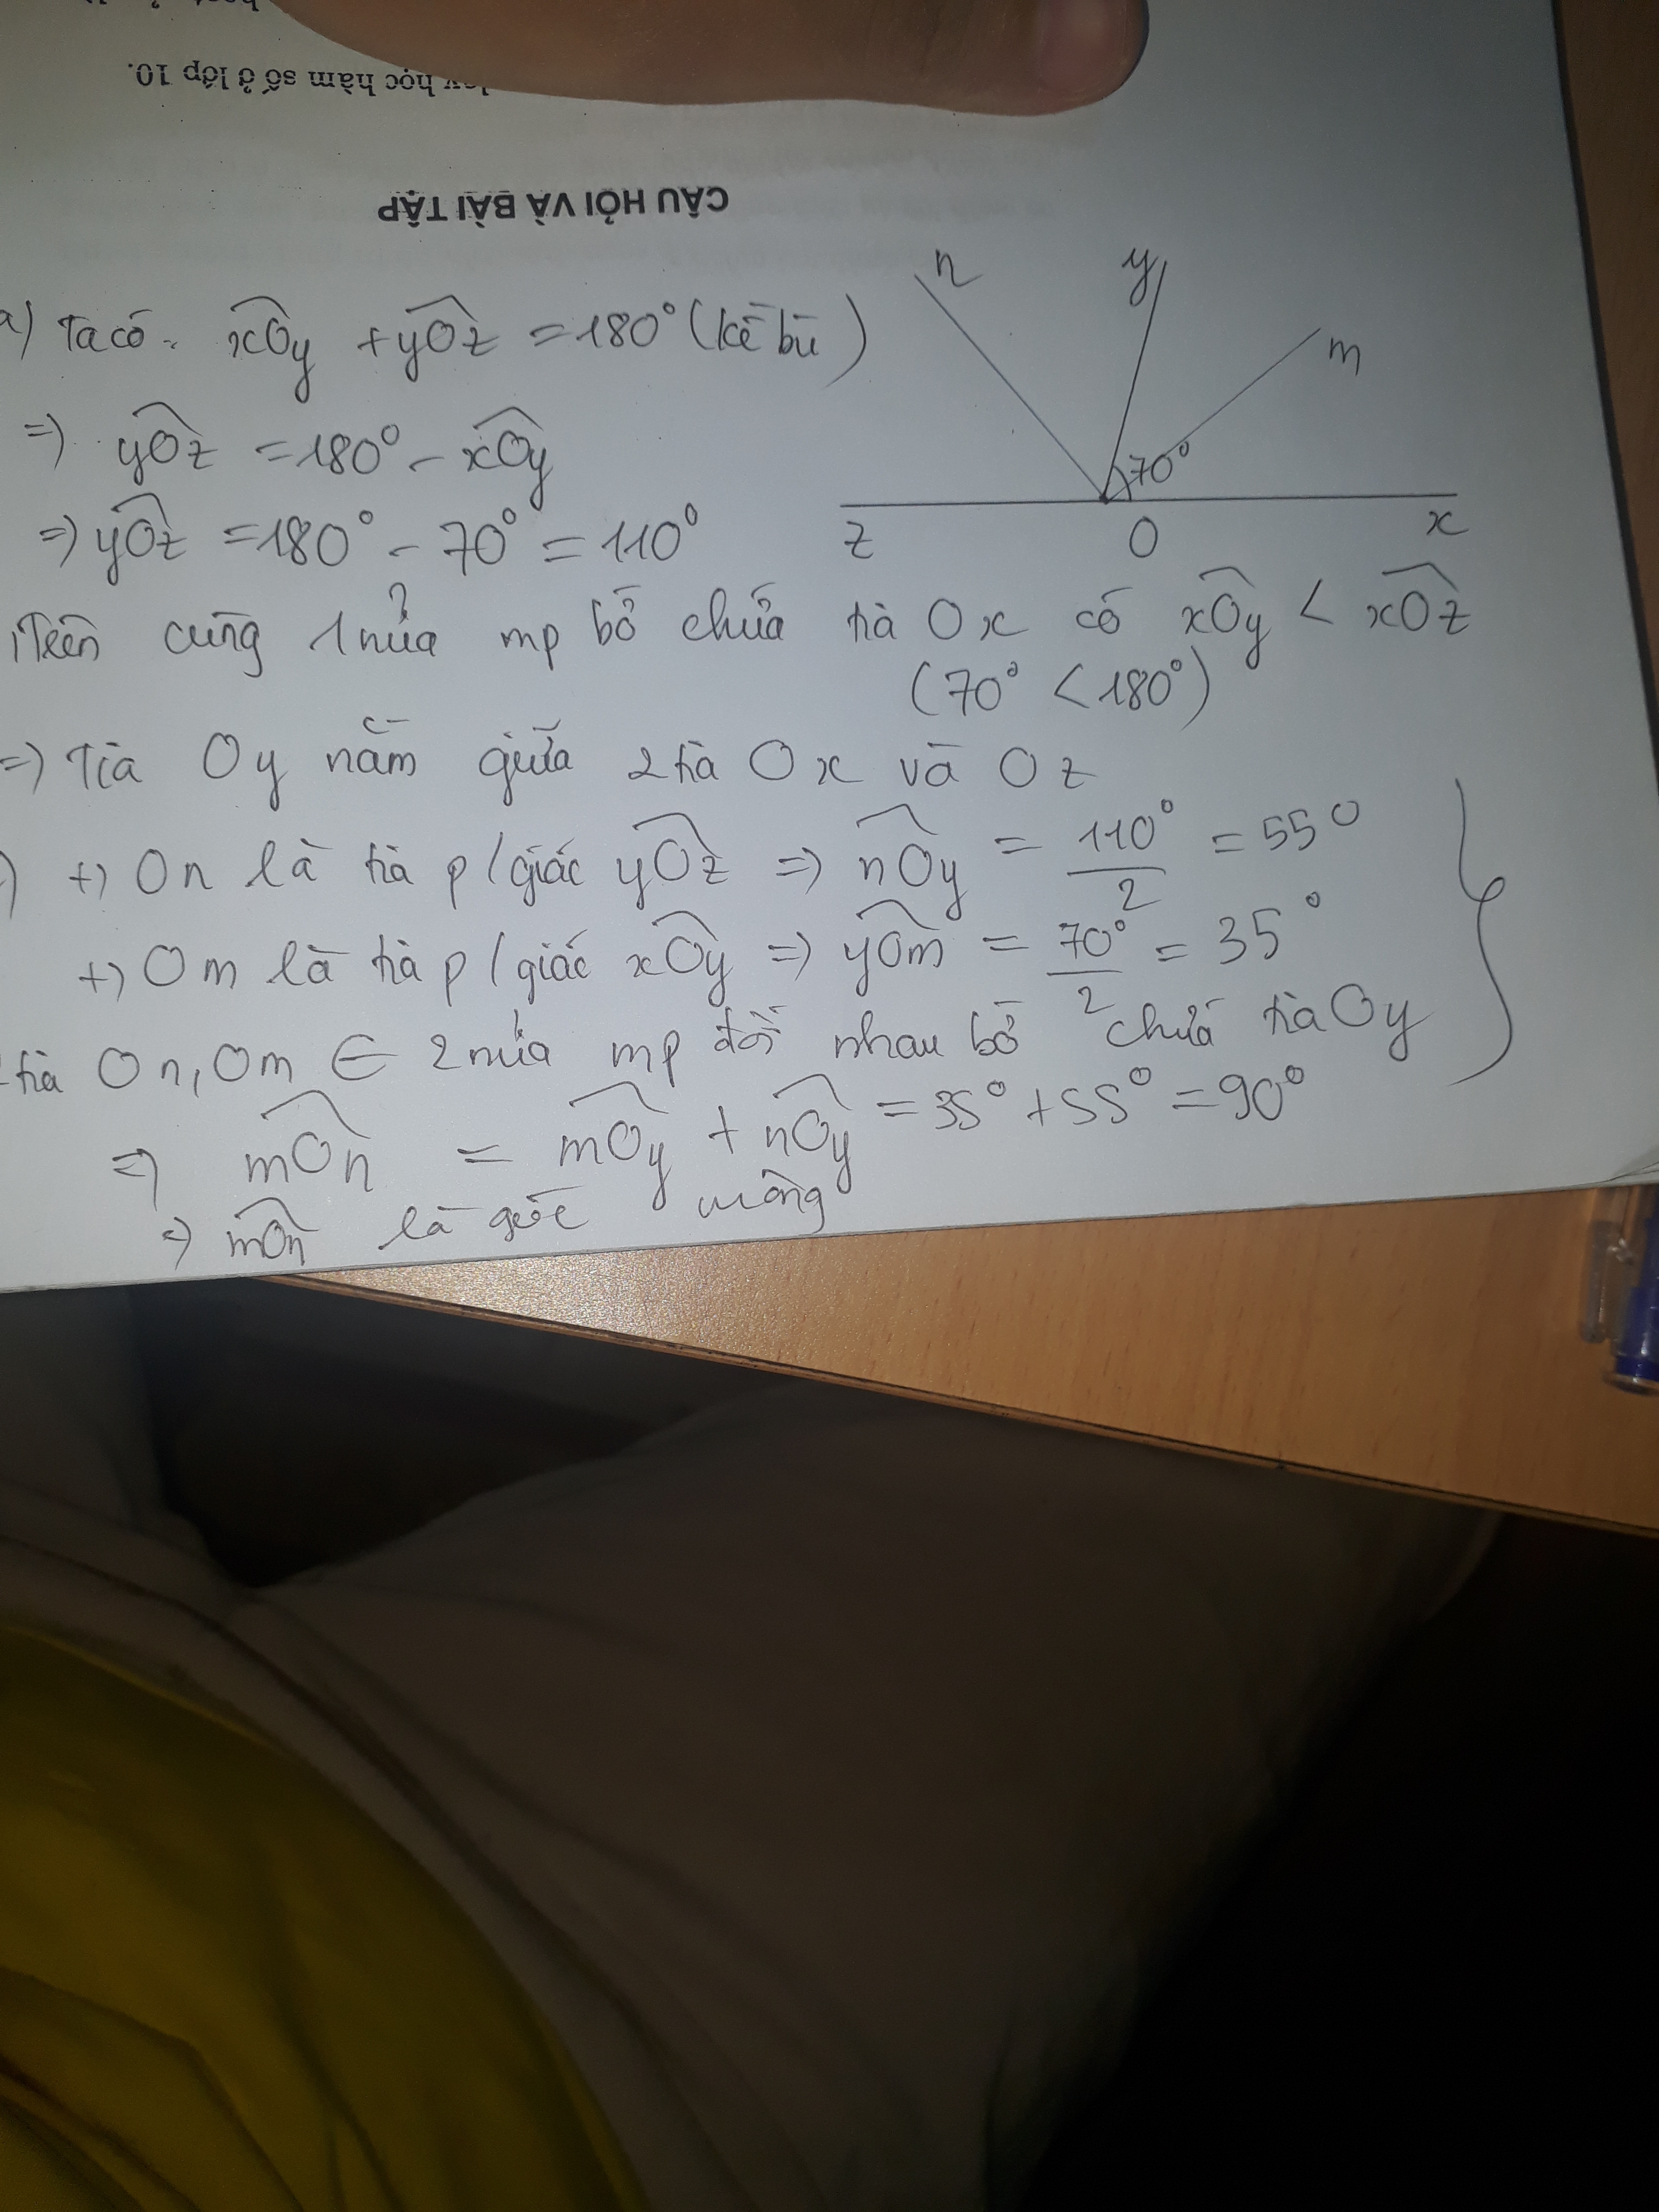 học hàm số ở lớp 10.
CÂU HỎI VÀ BÀI TẬP
n
y
m
70°
z
O
x
a) Ta có: xOy + yOz = 180° (kề bù)
=) yOz = 180° - xOy
=) yOz = 180° - 70° = 110°
Trên cùng 1 nửa mp bờ chứa tia Ox có xOy < xOz
(70° < 180°)
=) Tia Oy nằm giữa 2 tia Ox và Oz
) +) On là tia p/giác yOz =) nOy = 110°/2 = 55°
+) Om là tia p/giác xOy =) yOm = 70°/2 = 35°
tia On, Om ∈ 2 nửa mp đối nhau bờ chứa tia Oy
=) mOn = mOy + nOy = 35° + 55° = 90°
=) mOn là góc vuông